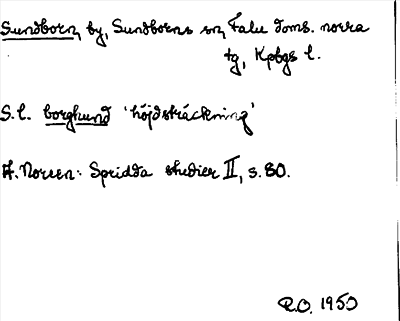 Sundborn, by, Sundborns sn, Falu doms. norra
tg, Kpbgs l.
S.l. borghund 'höjdsträckning'
A. Noreen: Spridda studier II, s. 80.
R.O. 1950